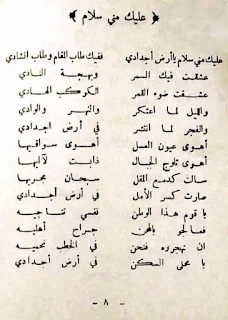 ﴿ عليك مني سلام ﴾
عليك مني سلام يا أرض أجدادي ففيك طاب المقام وطاب انشادي
عشقت فيك السمر وبهجة النادي
عشقت ضوء القمر والكوكب الهادي
والليل لما اعتكر والنهر والوادي
والفجر لما انتشر في أرض اجدادي
أهوى عيون العسل أهوى سواقيها
أهوى ثلوج الجبال ذابت لآليها
سالت كدمع المقل سبحان مجريها
صارت كسر الأمل في أرض أجدادي
يا قوم هذا الوطن نفسي تناجيه
فعالجوا بالمحن جراح أهليه
ان تهجروه فمن في الخطب نحميه
يا محلى السكن في أرض أجدادي
- ٨ -